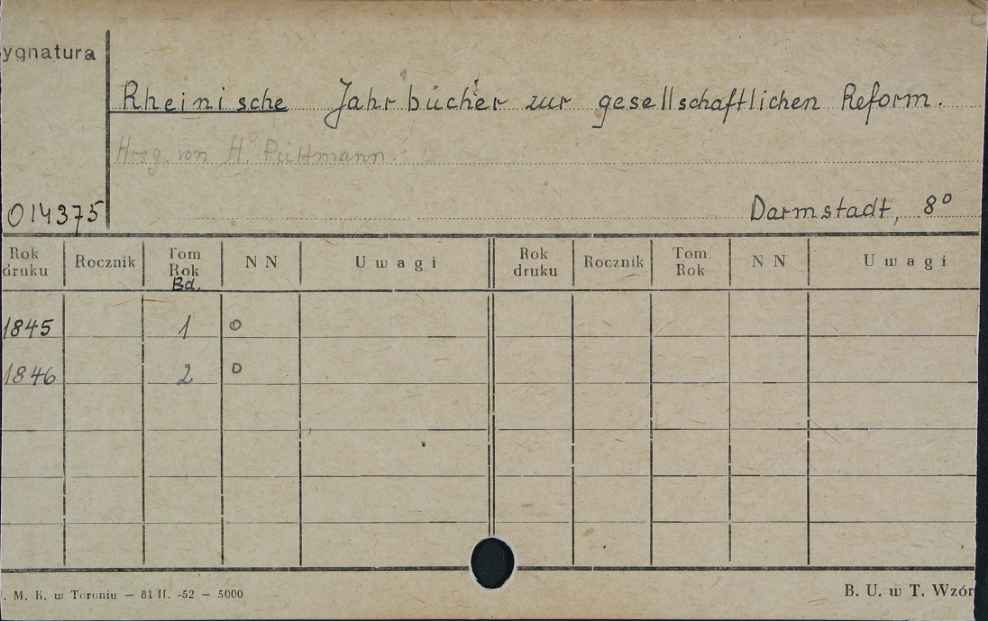 ygnatura
Rheinische Jahrbücher zur gesellschaftlichen Reform.
Hrsg. von H. Püttmann.
014375
Darmstadt, 8°
Rok druku Rocznik Tom Rok Bd. N N Uwagi Rok druku Rocznik Tom Rok N N Uwagi
1845 1 o
1846 2 o
. M. K. w Toruniu — 81 II. -52 — 5000
B. U. w T. Wzór